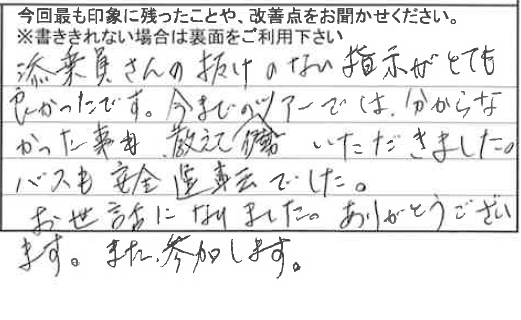 今回最も印象に残ったことや、改善点をお聞かせください。
※書ききれない場合は裏面をご利用下さい
添乗員さんの抜けのない指示がとても
良かったです。今までのツアーでは、分からな
かった事も、教えて いただきました。
バスも安全運転でした。
お世話になりました。ありがとうござい
ます。また、参加します。